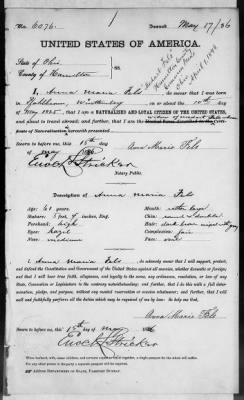 No. 6076.
Issued, May 17/86
UNITED STATES OF AMERICA.
State of Ohio
County of Hamilton } ss:
I, Anna Maria Fels, do swear that I was born
in Württemberg, on or about the 10th day
of May 1825; that I am a NATURALIZED AND LOYAL CITIZEN OF THE UNITED STATES,
and about to travel abroad; and further, that I am the
Sworn to before me, this 15th day
of May 1886
Anna Maria Fels
Enoch L Stricker
Notary Public.
Description of Anna Maria Fels
Age: 61 years.
Stature: 5 feet, inches, Eng.
Forehead: high
Eyes: hazel
Nose: medium
Mouth: rather large
Chin:
Hair: dark brown mixed with gray
Complexion: fair
Face: oval
I, Anna Maria Fels, do solemnly swear that I will support, protect,
and defend the Constitution and Government of the United States against all enemies, whether domestic or foreign;
and that I will bear true faith, allegiance, and loyalty to the same, any ordinance, resolution, or law of any
State, Convention or Legislature to the contrary notwithstanding; and further, that I do this with a full determination,
pledge, and purpose, without any mental reservation or evasion whatsoever; and further, that I will
well and faithfully perform all the duties which may be required of me by law: So help me God.
Anna Maria Fels
Sworn to before me, this 15th day of May 1886
Enoch L Stricker